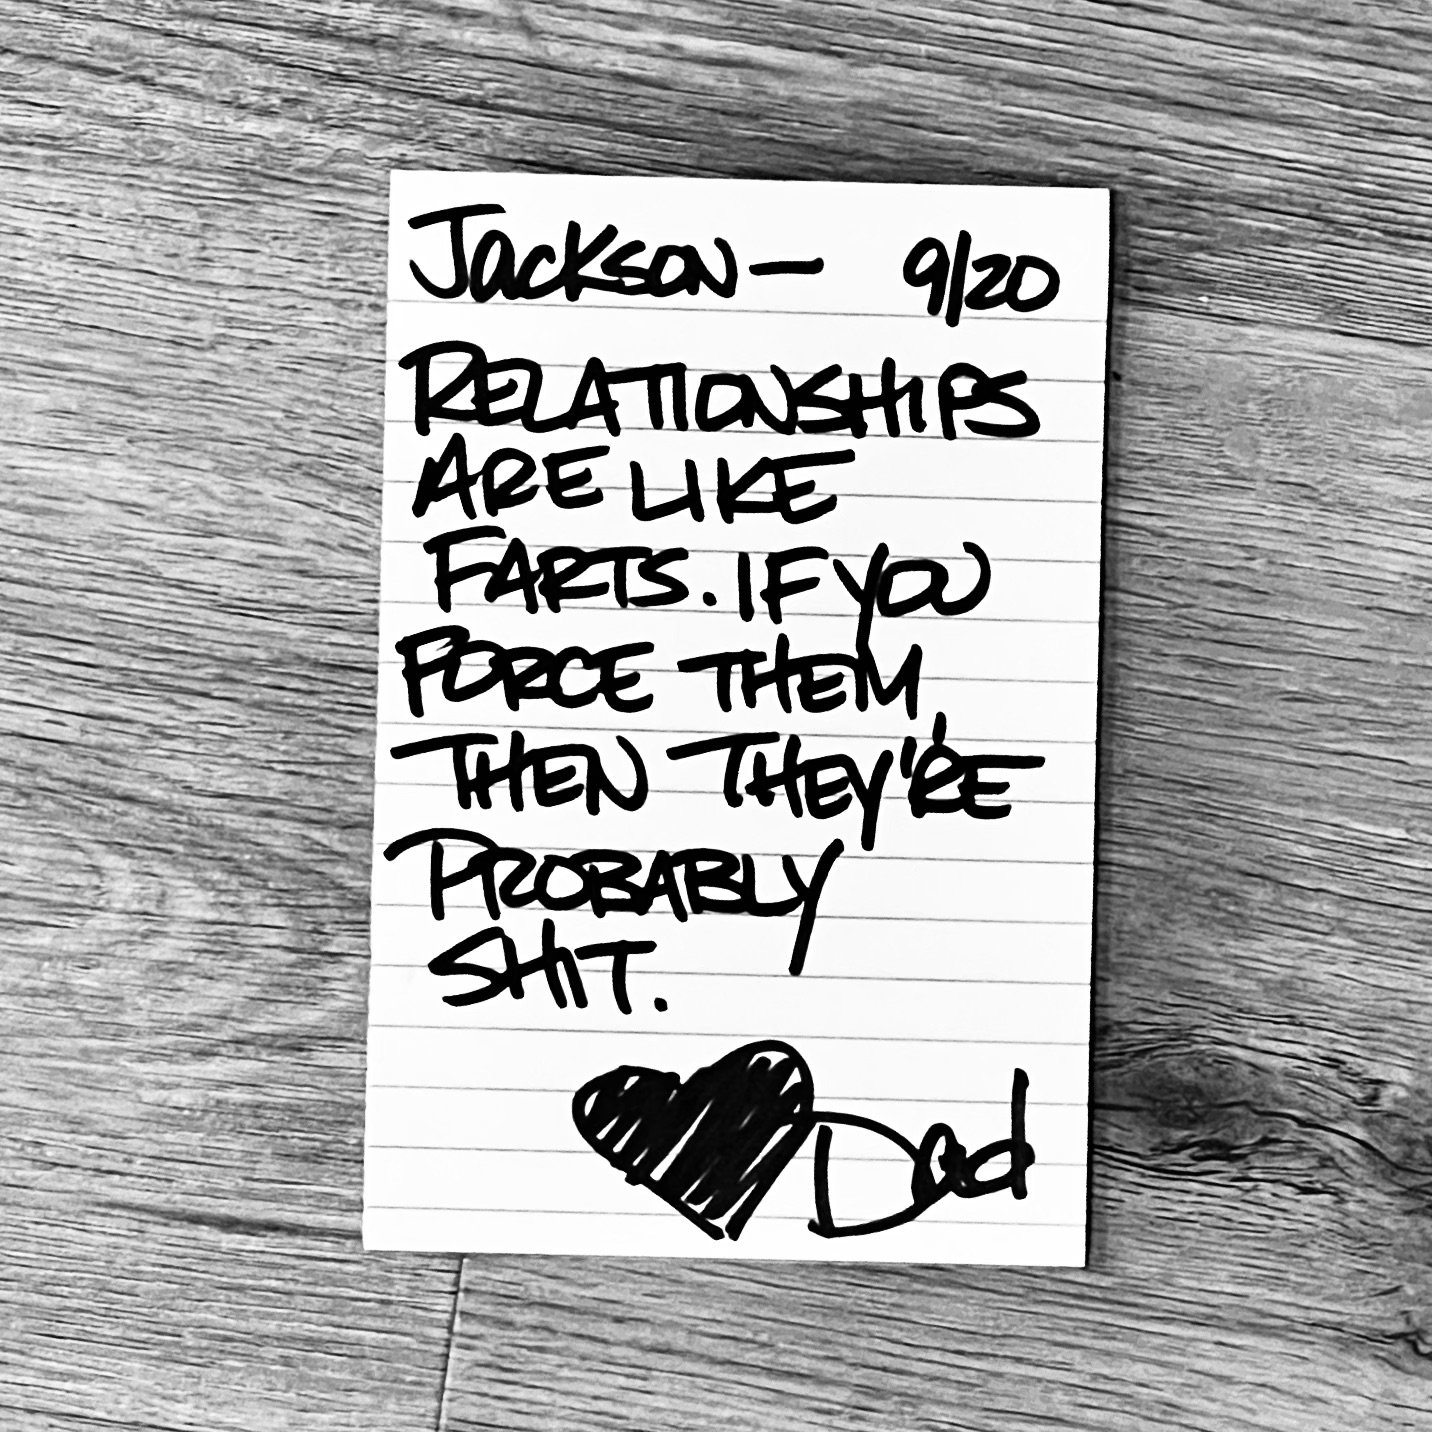 Jackson— 9/20
RELATIONSHIPS
ARE LIKE
FARTS. IF YOU
FORCE THEM,
THEN THEY'RE
PROBABLY
SHIT.
♥ Dad